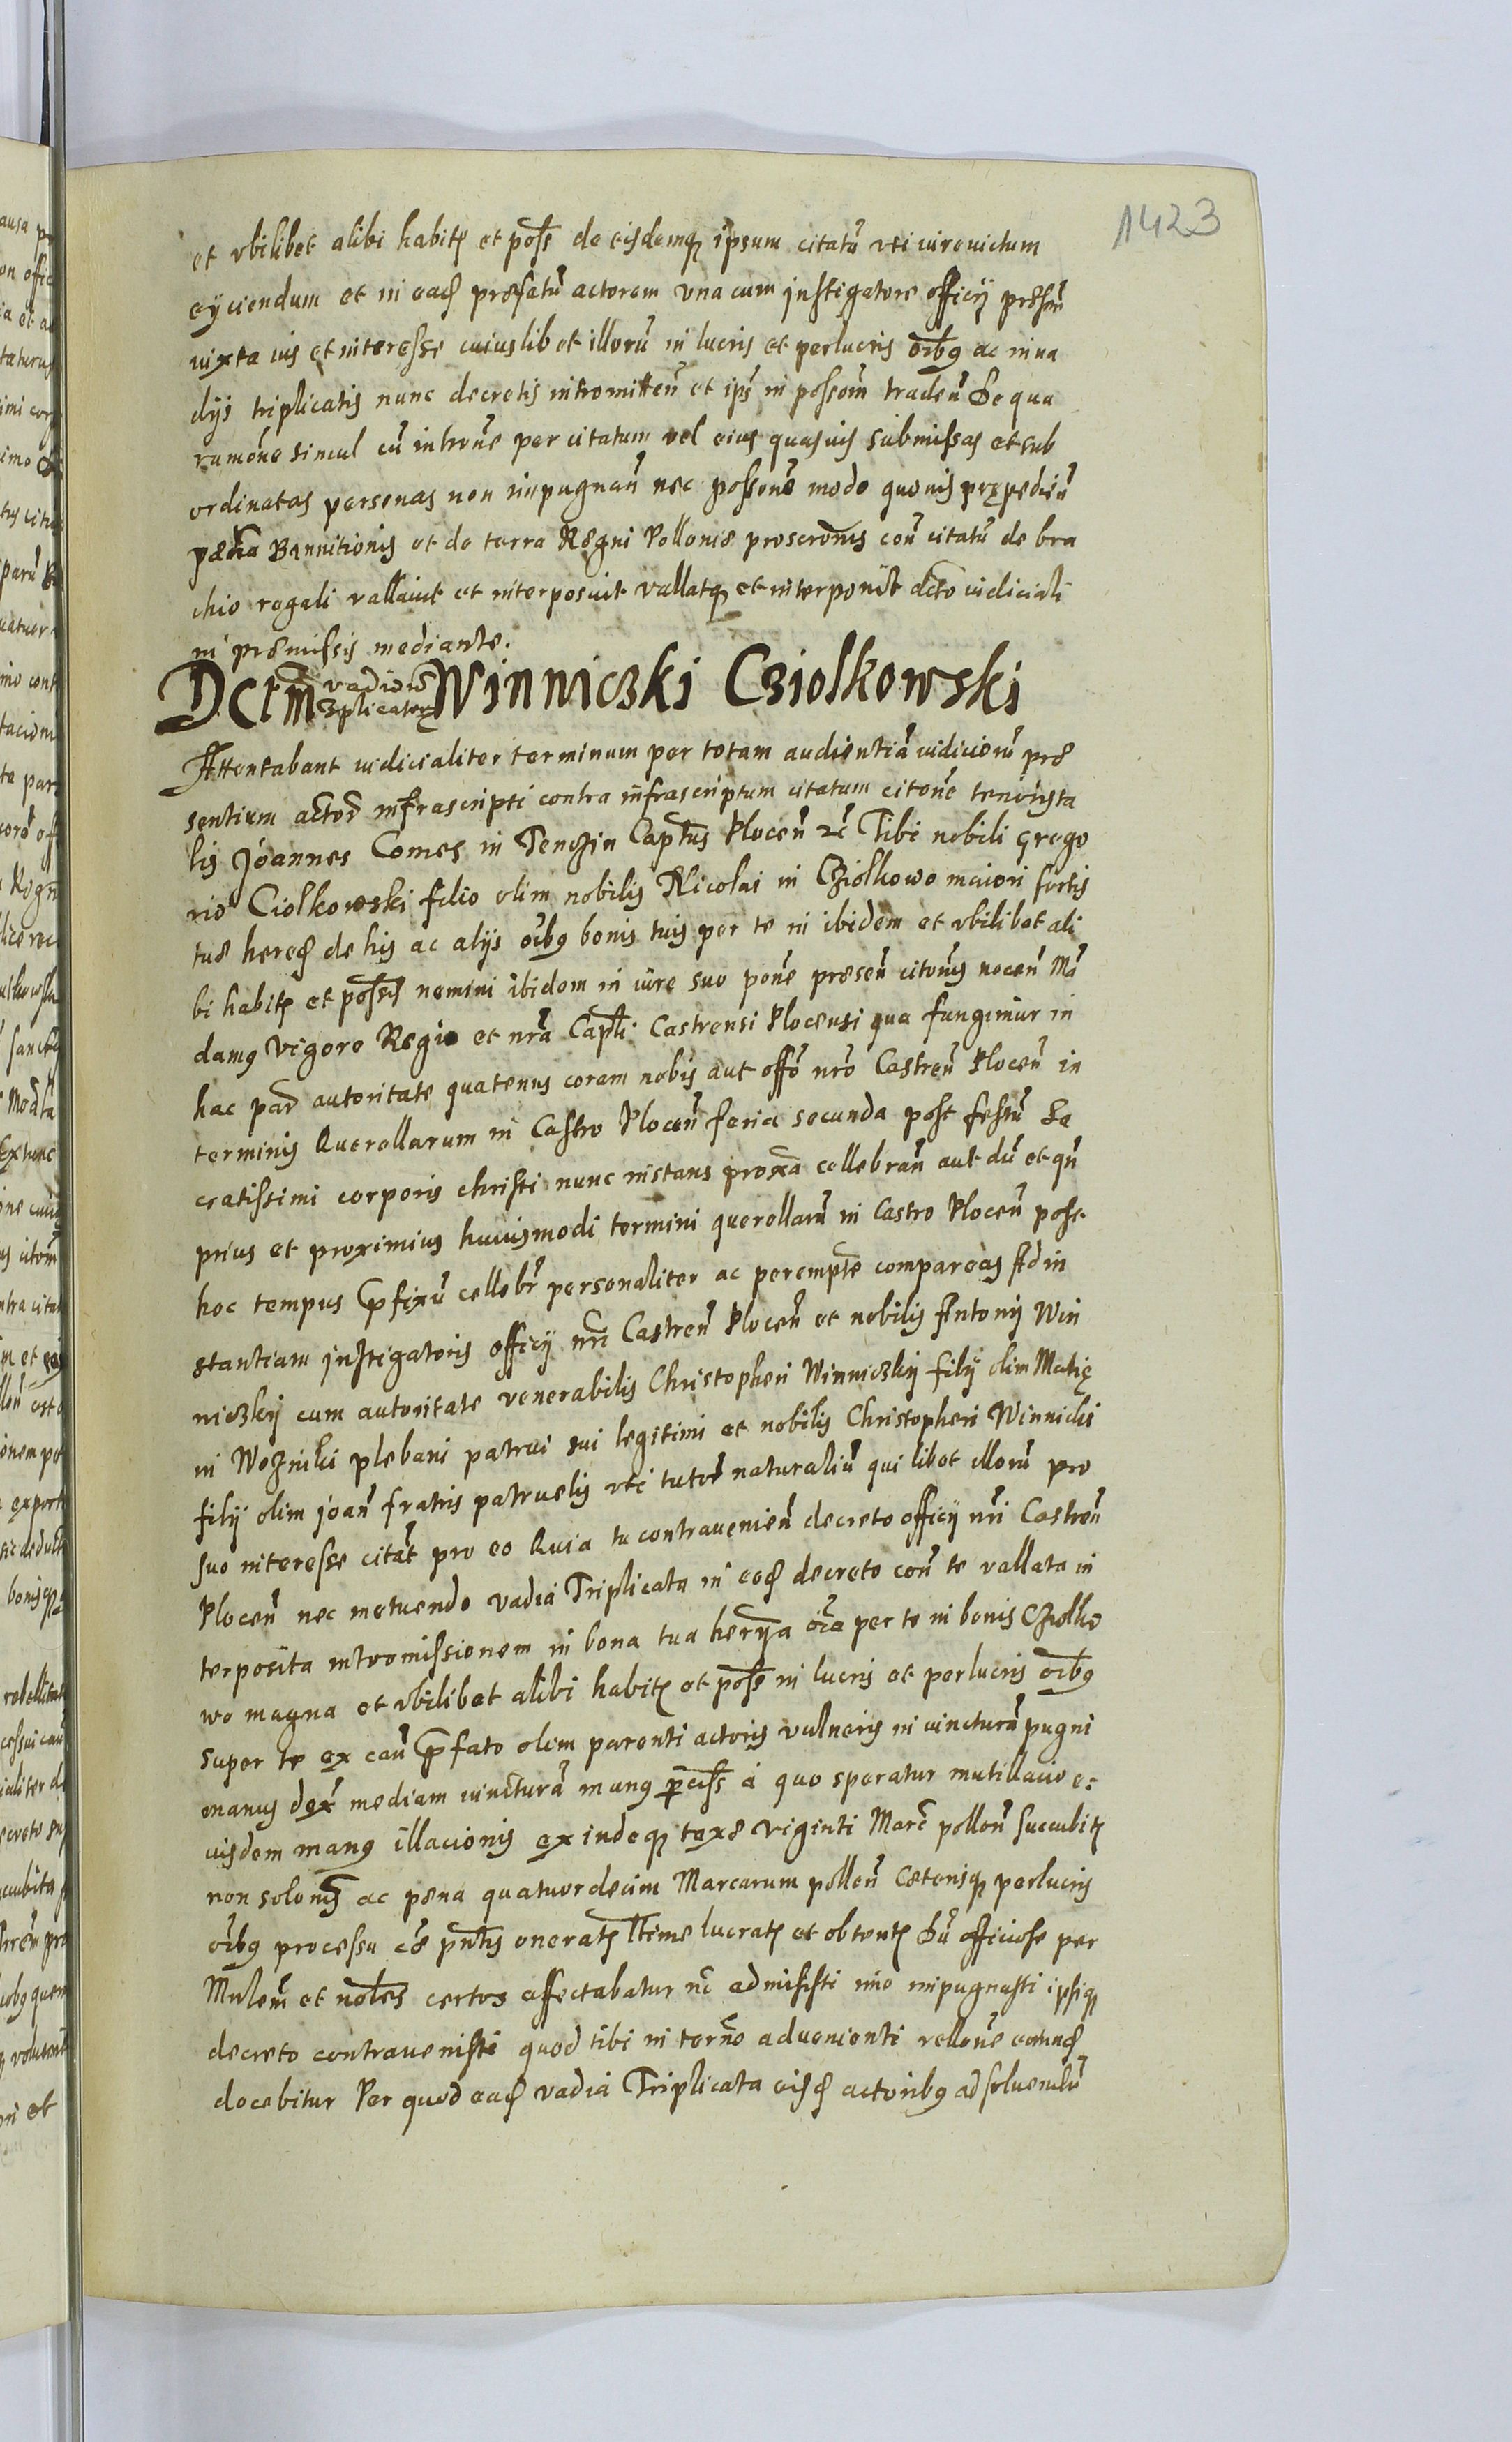 1423
et vbilibet alibi habitis et poss de eisdemq ipsum citatũ vti iurevictum
eyciendum et in eaꝗ præfatũ actorem vna cum instigatore officÿ præsen
iuxta ius et interesse cuiuslibet illorũ in lucris et perlucris oibꝰ ac in va
dÿs triplicatis nunc decretis intromitten et ips in possom traden Se qua
ramone simul cũ introne per citatum vel eius quasuis submissas et sub
ordinatas personas non impugnan nec possone modo quouis prępedien
pæna Bannitionis et de terra Regni Polloniæ proscronis con citatũ de bra
chio regali vallauit et interposuit vallatq et interponit dcto iudiciali
in præmissis mediante.
Dctm vadiorũ 3plicatorũ Winniczki Cziolkowski
Attentabant iudicialiter terminum per totam audientiã iudiciorũ præ
sentium actor infrascripti contra infrascriptum citatum citone tenoris ta
lis Joannes Comes in Tenczin Captus Plocen zc Tibi nobili Grego
rio Ciolkowski filio olim nobilis Nicolai in Cziolkowo maiori sortis
tuæ hereꝗ de his ac alÿs oibꝰ bonis tuis per te in ibidem et vbilibet ali
bi habitis et possis nemini ibidem in iure suo pone præsen citonis nocen Mã
damꝰ vigore Regia et nrã Capli Castrensi Plocensi qua fungimur in
hac par autoritate quatenus coram nobis aut offo nro Castren Plocen in
terminis Querellarum in Castro Plocen feria secunda post festũ Sa
cratissimi corporis christi nunc instans proxa cellebran aut dũ et qñ
prius et proximius huiusmodi termini querellarũ in Castro Plocen post
hoc tempus pfixũ cellebr personaliter ac perempte compareas Ad in
stantiam instigatoris officÿ nri Castren Plocen et nobilis Antonÿ Win
niczkÿ cum autoritate venerabilis Christopheri Winniczkÿ filÿ olim Matię
in Woźniki plebani patrui sui legitimi et nobilis Christopheri Winnicki
filÿ olim Joan fratris patruelis vti tutor naturaliũ qui libet illorũ pro
suo interesse citat pro eo Quia tu contravenien decreto officÿ nri Castren
Plocen nec metuendo vadia Triplicata in eoꝗ decreto con te vallata in
terposita intromissionem in bona tua herria oia per te in bonis Cziolko
wo magna et vbilibet alibi habitis et poss in lucris et perlucris oibꝰ
super te ex cau pfato olim parenti actoris vulneris in iuncturã pugni
manus dex mediam iuncturã manꝰ pciss a quo speratur mutillacio e:
iusdem manꝰ illacionis exindeq taxæ viginti Marc pollon succubitis
non solonis ac pæna quatuordecim Marcarum pollon cæterisq perlucris
oibꝰ processu eo pntis oneratis ltime lucratis et obtentis Dũ officiose per
Mnlem et nobles certos affectabatur nc admisisti imo impugnasti ipsiq
decreto contravenisti quod tibi in terno advenienti rellone eorunꝗ
docebitur Per quod eaꝗ vadia Triplicata eisꝗ actoribꝰ ad solvendũ